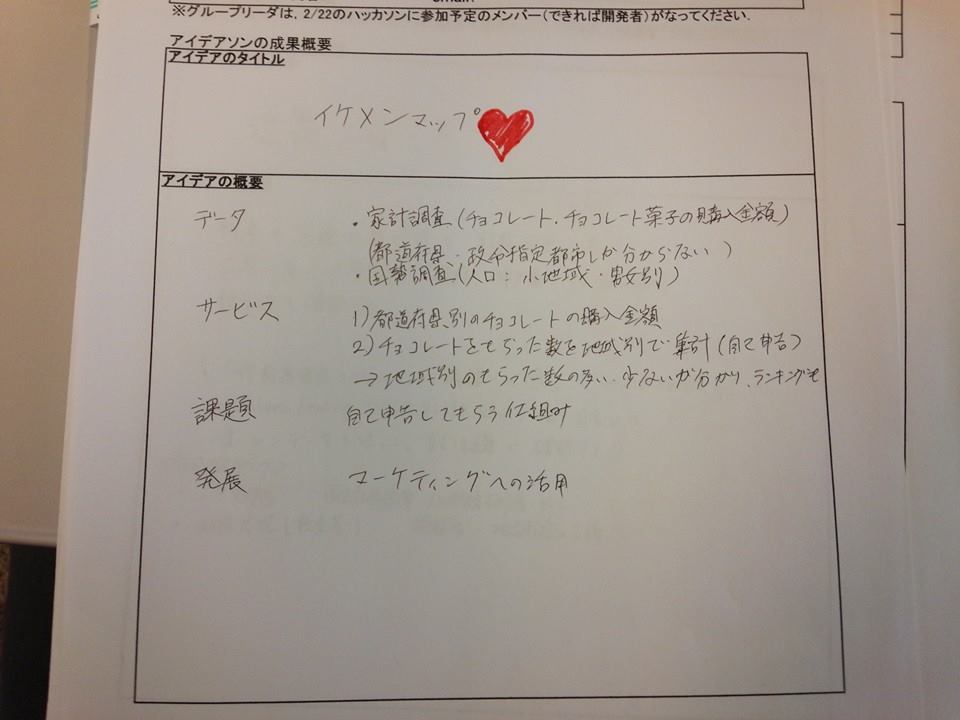 ※グループリーダは、2/22のハッカソンに参加予定のメンバー(できれば開発者)がなってください.
アイデアソンの成果概要
アイデアのタイトル
イケメンマップ
アイデアの概要
データ ・家計調査(チョコレート・チョコレート菓子の購入金額)
(都道府県、政令指定都市しか分からない)
・国勢調査(人口:小地域・男女別)
サービス 1)都道府県別のチョコレートの購入金額
2)チョコレートをもらった数を地域別で集計(自己申告)
→地域別のもらった数の多い・少ないが分かり、ランキングも
課題 自己申告してもらう仕組み
発展 マーケティングへの活用